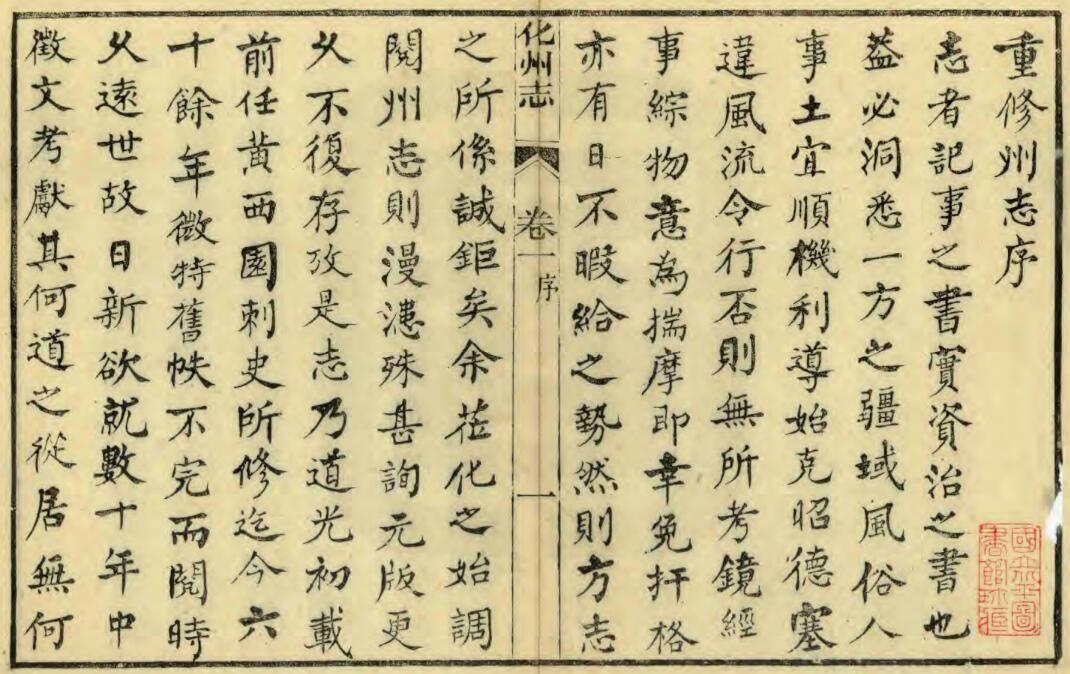 重修州志序
志者記事之書實資治之書也
蓋必洞悉一方之疆域風俗人
事土宜順機利導始克昭德塞
違風流令行否則無所考鏡經
事綜物意為揣摩即幸免扞格
亦有日不暇給之勢然則方志
化州志 卷一 序 一
之所係誠鉅矣余蒞化之始調
閱州志則漫漶殊甚詢元版更
乆不復存攷是志乃道光初載
前任黃西園刺史所修迄今六
十餘年微特舊帙不完而閱時
乆遠世故日新欲就數十年中
徵文考獻其何道之從居無何
國立北平圖書館珍藏